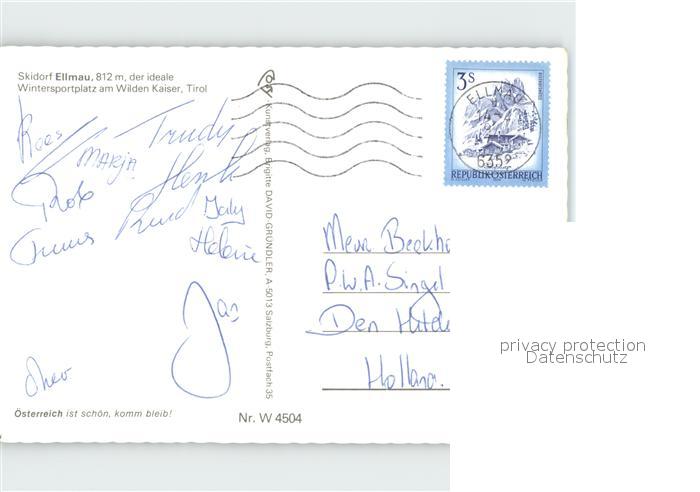 Skidorf Ellmau, 812 m, der ideale
Wintersportplatz am Wilden Kaiser, Tirol
Kees
Trudy
MARJA
Henk
Rob
Ruud
Helene
Jan
Theo
Österreich ist schön, komm bleib!
Kunstverlag Brigitte DAVID-GRÜNDLER, A-5013 Salzburg, Postfach 35
Nr. W 4504
3 S
ELLMAU
6352
REPUBLIK ÖSTERREICH
P.W.A. Singel
Den
Holland.
privacy protection
Datenschutz